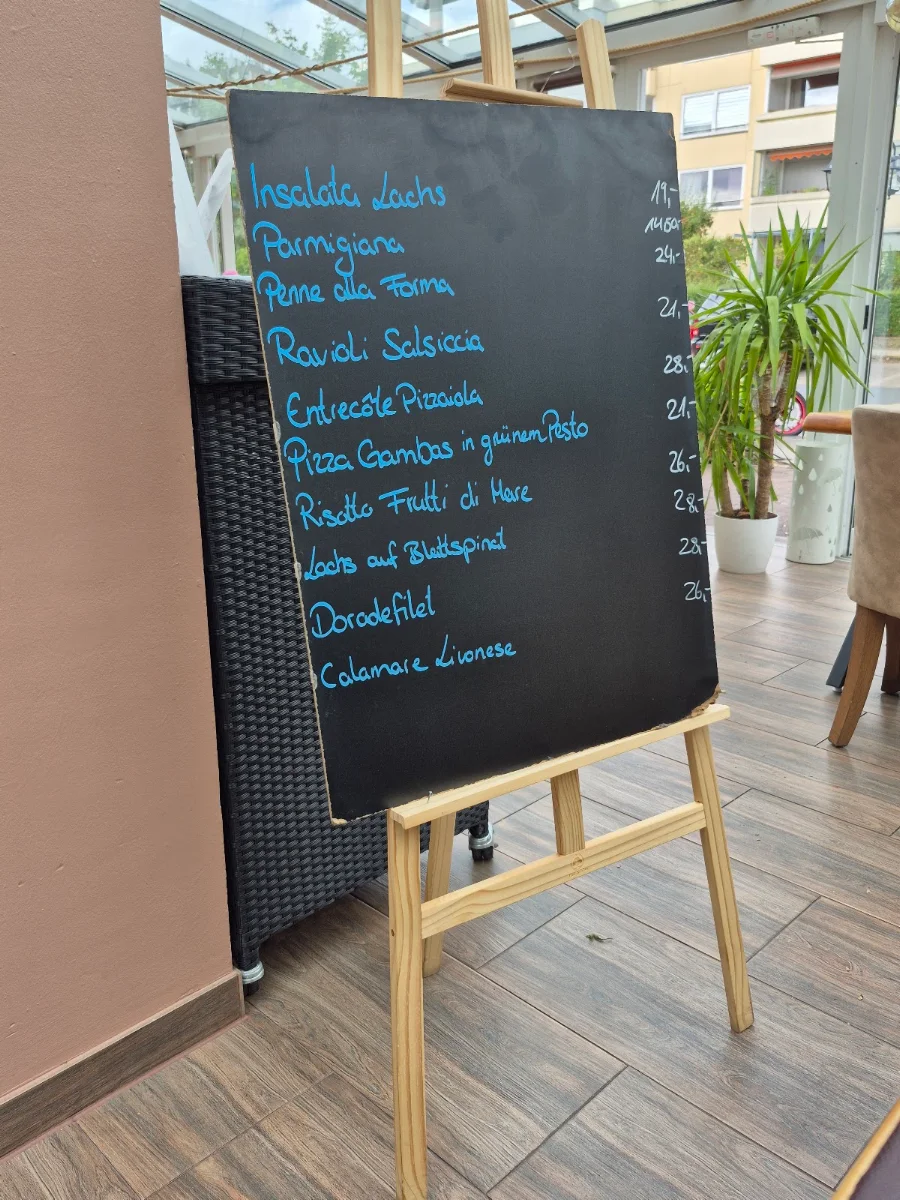 Insalata Lachs 19,-
Parmigiana 14.50,-
Penne alla Forma 24,-
Ravioli Salsiccia 21,-
Entrecôte Pizzaiola 28,-
Pizza Gambas in grünem Pesto 21,-
Risotto Frutti di Mare 26,-
Lachs auf Blattspinat 28,-
Doradefilet 28,-
Calamare Livonese 26,-